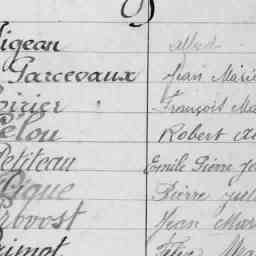 igeau Alfred
Parcevaux Jean Marie
oirier François Ma
élou Robert
Petiteau Emile Pierre
Pique Pierre Jul
rovost Jean Mar
rimot